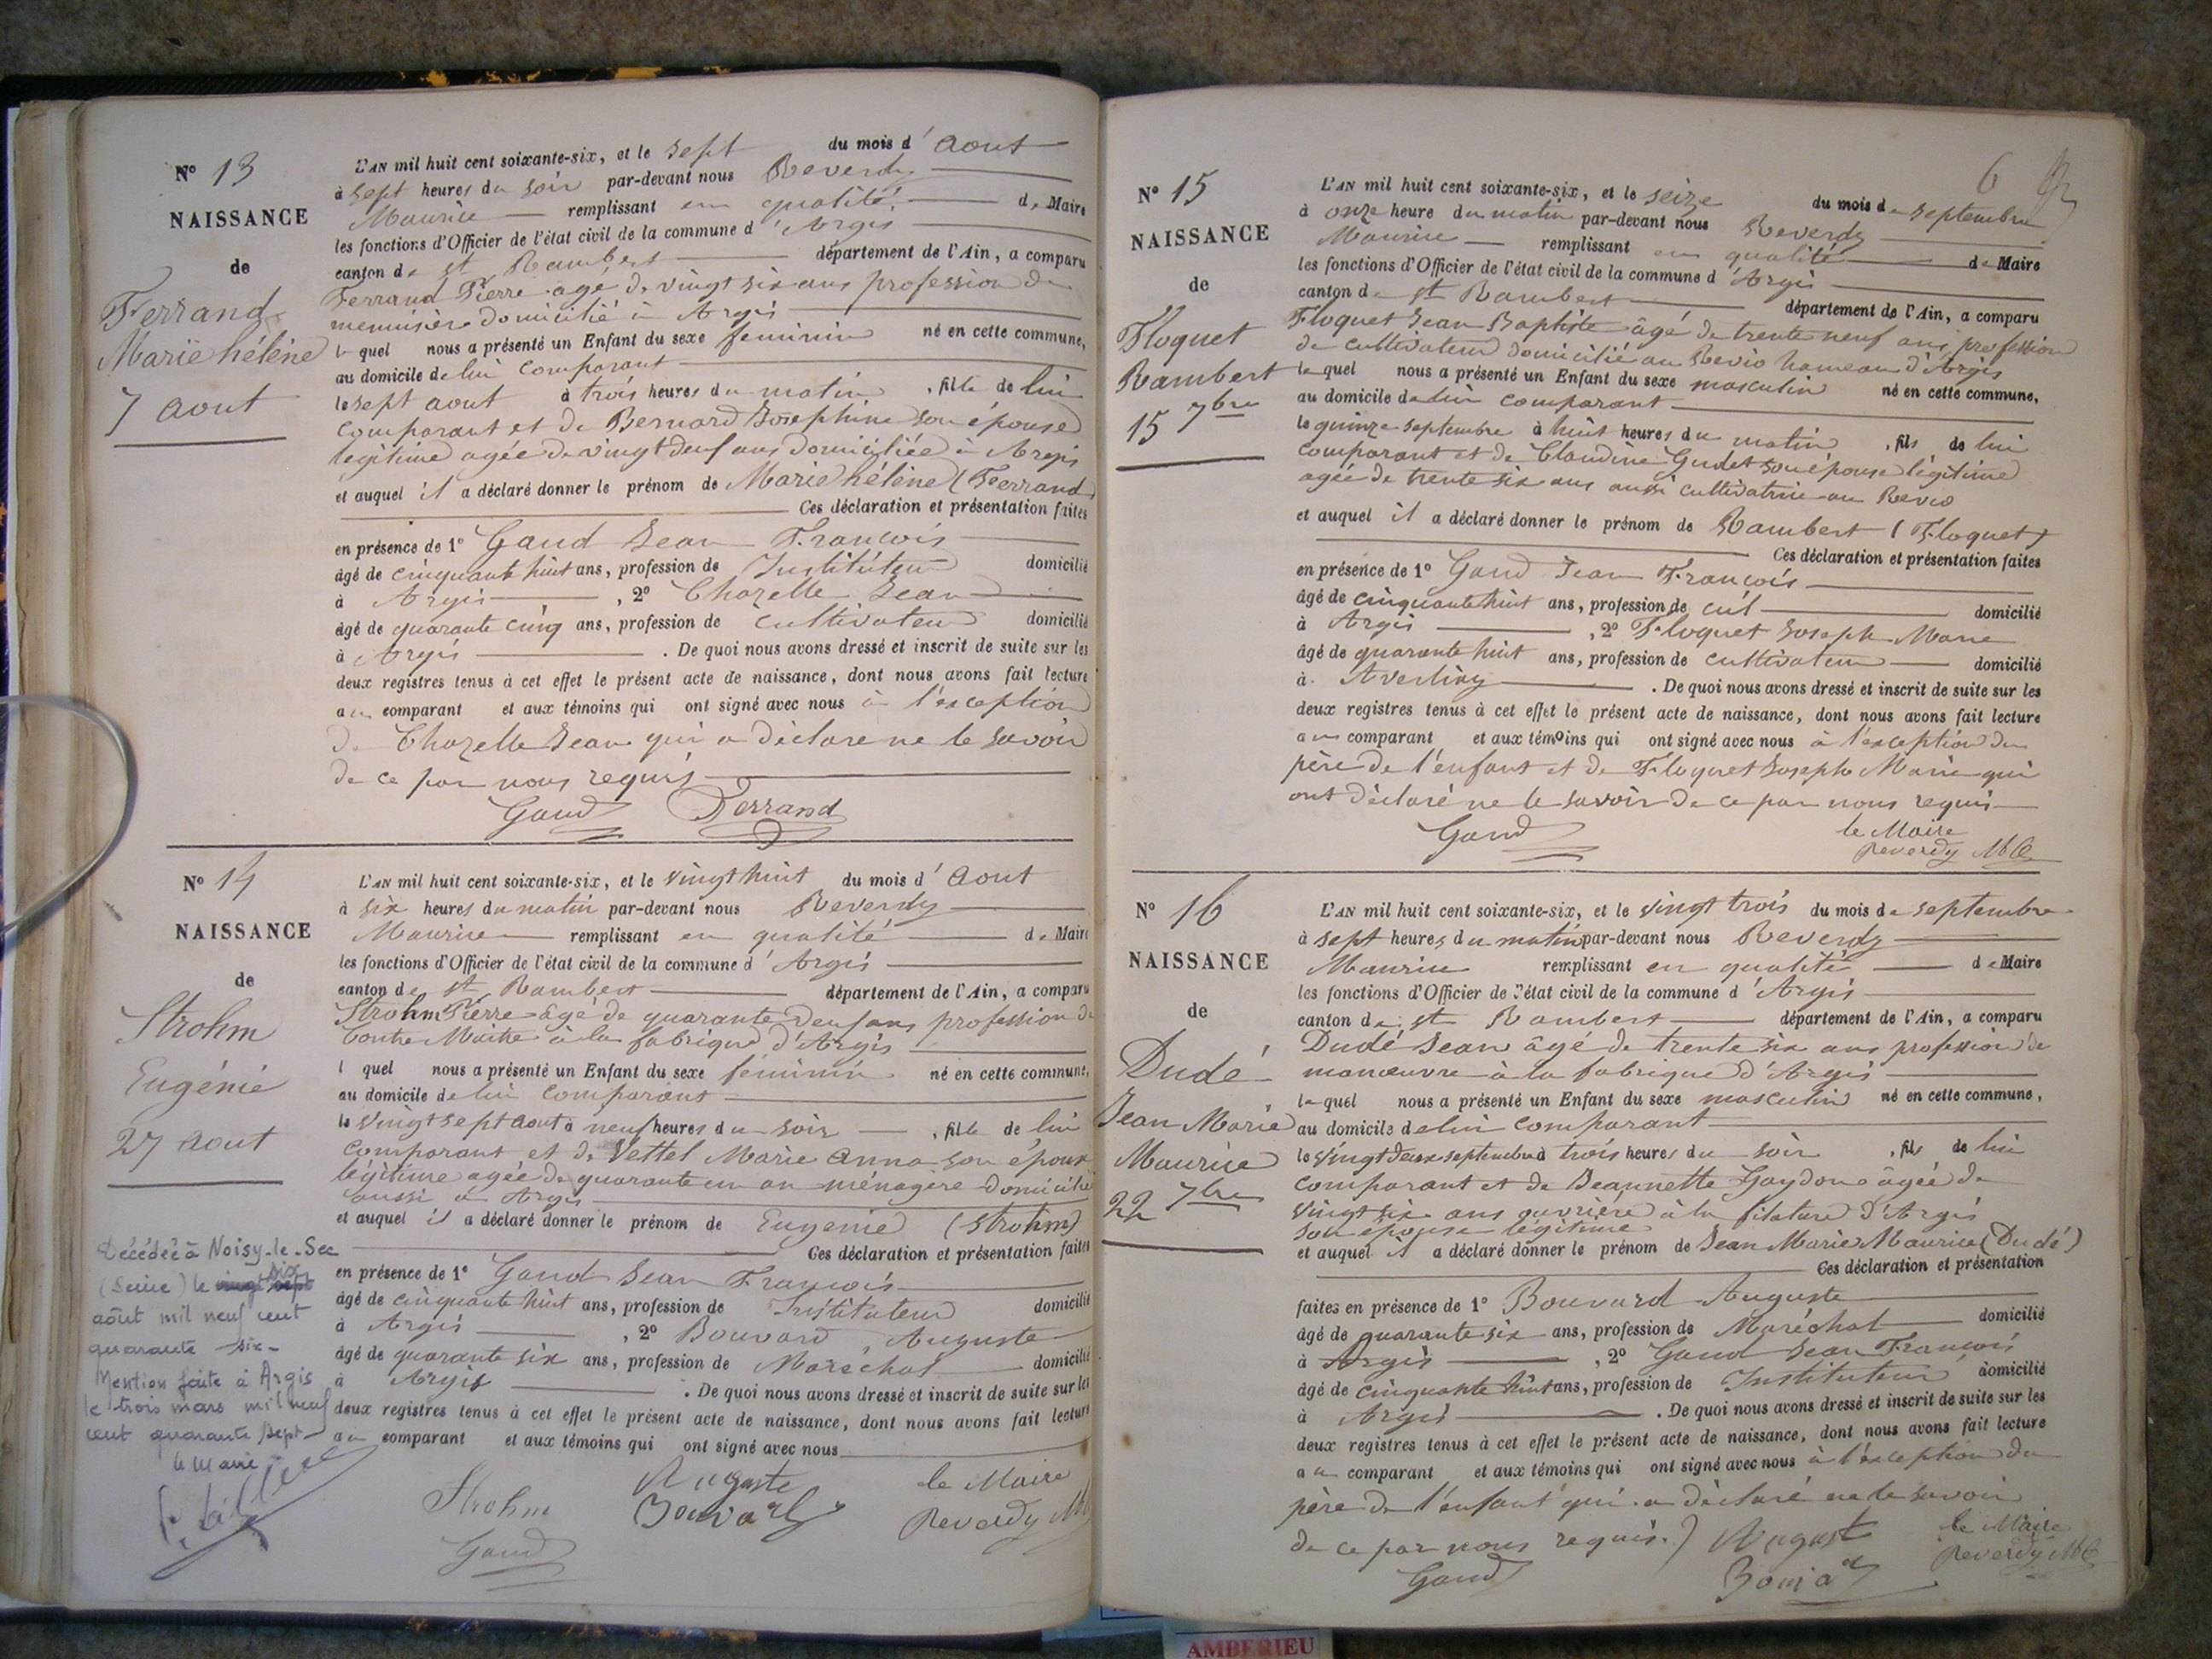 N° 13
NAISSANCE
de
Ferrand
Marie hélène
7 aout
L'AN mil huit cent soixante-six, et le sept du mois d'aout
à sept heures du soir par-devant nous Reverdy
Maurice remplissant en qualité de Maire
les fonctions d'Officier de l'état civil de la commune d'Argis
canton de st Rambert département de l'Ain, a comparu
Ferrand Pierre agé de vingt six ans profession de
menuisier domicilié à Argis
lequel nous a présenté un Enfant du sexe feminin né en cette commune,
au domicile de lui comparant
le sept aout à trois heures du matin, fille de lui
comparant et de Bernard Josephine son épouse
légitime agée de vingt deux ans domiciliée à Argis
et auquel il a déclaré donner le prénom de Marie hélène (Ferrand)
Ces déclaration et présentation faites
en présence de 1° Gaud Jean François
âgé de cinquante huit ans, profession de Instituteur domicilié
à Argis, 2° Chazelle Jean
âgé de quarante cinq ans, profession de cultivateur domicilié
à Argis. De quoi nous avons dressé et inscrit de suite sur les
deux registres tenus à cet effet le présent acte de naissance, dont nous avons fait lecture
au comparant et aux témoins qui ont signé avec nous à l'exception
de Chazelle Jean qui a déclare ne le savoir
de ce par nous requis
Gaud Ferrand
N° 14
NAISSANCE
de
Strohm
Eugénie
27 aout
L'AN mil huit cent soixante-six, et le vingt huit du mois d'aout
à six heures du matin par-devant nous Reverdy
Maurice remplissant en qualité de Maire
les fonctions d'Officier de l'état civil de la commune d'Argis
canton de st Rambert département de l'Ain, a comparu
Strohm Pierre âgé de quarante deux ans profession de
Contre Maitre à la fabrique d'Argis
l quel nous a présenté un Enfant du sexe féminin né en cette commune,
au domicile de lui comparant
le vingt sept aout à neuf heures du soir, fille de lui
comparant et de Vettel Marie Anna son épouse
légitime agée de quarante un an ménagère domicilié
aussi à Argis
et auquel il a déclaré donner le prénom de Eugenie (Strohm)
Ces déclaration et présentation faites
en présence de 1° Gaud Jean François
âgé de cinquante huit ans, profession de Instituteur domicilié
à Argis, 2° Bouvard Auguste
âgé de quarante six ans, profession de Maréchal domicilié
à Argis. De quoi nous avons dressé et inscrit de suite sur les
deux registres tenus à cet effet le présent acte de naissance, dont nous avons fait lecture
au comparant et aux témoins qui ont signé avec nous
Décédée à Noisy-le-Sec
(Seine) le vingt sept six
août mil neuf cent
quarante six-
Mention faite à Argis
le trois mars mil neuf
cent quarante sept
le Maire
Strohm Auguste Bouvard le Maire
Gaud Reverdy
6
N° 15
NAISSANCE
de
Floquet
Rambert
15 7bre
L'AN mil huit cent soixante-six, et le seize du mois de septembre
à onze heure du matin par-devant nous Reverdy
Maurice remplissant en qualité de Maire
les fonctions d'Officier de l'état civil de la commune d'Argis
canton de st Rambert département de l'Ain, a comparu
Floquet Jean Baptiste âgé de trente neuf ans, profession
de cultivateur domicilié au Revio hameau d'Argis
lequel nous a présenté un Enfant du sexe masculin né en cette commune,
au domicile de lui comparant
le quinze septembre à huit heures du matin, fils de lui
comparant et de Claudine Gudet son épouse légitime
agée de trente six ans aussi cultivatrice au Revio
et auquel il a déclaré donner le prénom de Rambert (Floquet)
Ces déclaration et présentation faites
en présence de 1° Gaud Jean François
âgé de cinquante huit ans, profession de domicilié
à Argis, 2° Floquet Joseph Marie
âgé de quarante huit ans, profession de cultivateur domicilié
à. De quoi nous avons dressé et inscrit de suite sur les
deux registres tenus à cet effet le présent acte de naissance, dont nous avons fait lecture
au comparant et aux témoins qui ont signé avec nous à l'exception du
père de l'enfant et de Floquet Joseph Marie qui
ont déclaré ne le savoir de ce par nous requis
Gaud le Maire
Reverdy
N° 16
NAISSANCE
de
Dudé
Jean Marie
Maurice
22 7bre
L'AN mil huit cent soixante-six, et le vingt trois du mois de septembre
à sept heures du matin par-devant nous Reverdy
Maurice remplissant en qualité de Maire
les fonctions d'Officier de l'état civil de la commune d'Argis
canton de st Rambert département de l'Ain, a comparu
Dudé Jean âgé de trente six ans profession de
manœuvre à la fabrique d'Argis
lequel nous a présenté un Enfant du sexe masculin né en cette commune,
au domicile de lui comparant
le vingt deux septembre à trois heures du soir, fils de lui
comparant et de Jeannette Gaydon agée de
vingt six ans ouvrière à la filature d'Argis
son épouse légitime
et auquel il a déclaré donner le prénom de Jean Marie Maurice (Dudé)
Ces déclaration et présentation
faites en présence de 1° Bouvard Auguste
âgé de quarante six ans, profession de Maréchal domicilié
à Argis, 2° Gaud Jean François
âgé de cinquante huit ans, profession de Instituteur domicilié
à Argis. De quoi nous avons dressé et inscrit de suite sur les
deux registres tenus à cet effet le présent acte de naissance, dont nous avons fait lecture
au comparant et aux témoins qui ont signé avec nous à l'exception du
père de l'enfant qui a déclaré ne le savoir
de ce par nous requis.)
Gaud le Maire
Reverdy
AMBERIEU